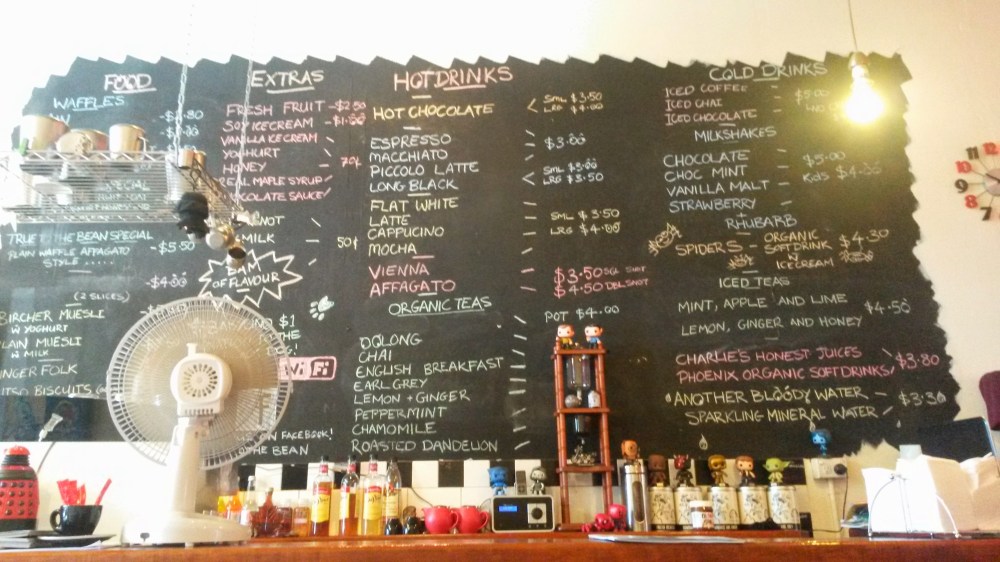 FOOD
WAFFLES
SPECIAL
TRUE TO THE BEAN SPECIAL
PLAIN WAFFLE AFFAGATO - $5.50
STYLE .....
(2 SLICES)
BIRCHER MUESLI
W YOGHURT
PLAIN MUESLI
W MILK
GINGER FOLK
BISCUITS
EXTRAS
FRESH FRUIT - $2.50
SOY ICECREAM - $1.00
VANILLA ICECREAM
YOGHURT
HONEY 70¢
REAL MAPLE SYRUP
CHOCOLATE SAUCE
MILK - 50¢
BAM
OF FLAVOUR
$1
THE
WiFi
ON FACEBOOK!
THE BEAN
HOT DRINKS
HOT CHOCOLATE < SML $3.50
LRG $4.00
ESPRESSO - $3.00
MACCHIATO
PICCOLO LATTE < SML $3.00
LONG BLACK LRG $3.50
FLAT WHITE
LATTE SML $3.50
CAPPUCINO LRG $4.00
MOCHA
VIENNA $3.50 SGL SHOT
AFFAGATO $4.50 DBL SHOT
ORGANIC TEAS POT $4.00
OOLONG
CHAI
ENGLISH BREAKFAST
EARL GREY
LEMON + GINGER
PEPPERMINT
CHAMOMILE
ROASTED DANDELION
COLD DRINKS
ICED COFFEE
ICED CHAI - $5.00
ICED CHOCOLATE
MILKSHAKES
CHOCOLATE - $5.00
CHOC MINT - KIDS $4.00
VANILLA MALT
STRAWBERRY
+
RHUBARB
SPIDERS - ORGANIC
SOFTDRINK $4.30
N
ICECREAM
ICED TEAS
MINT, APPLE AND LIME
LEMON, GINGER AND HONEY $4.50
CHARLIE'S HONEST JUICES
PHOENIX ORGANIC SOFTDRINKS $3.80
ANOTHER BLOODY WATER - $3.30
SPARKLING MINERAL WATER